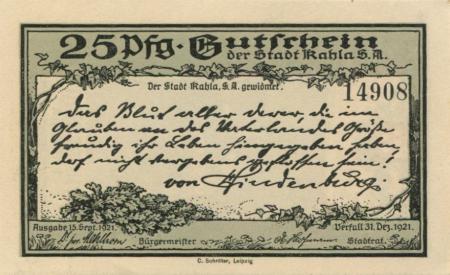 25 Pfg. Gutschein
der Stadt Kahla S.A.
Der Stadt Kahla, S.A. gewidmet.
14908
Das Blut aller derer, die im
Glauben an des Vaterlandes Größe
freudig ihr Leben hingegeben haben,
darf nicht vergebens geflossen sein!
von Hindenburg.
Ausgabe 15. Sept. 1921.
Verfall 31. Dez. 1921.
Bürgermeister
Stadtrat.
C. Schröter, Leipzig